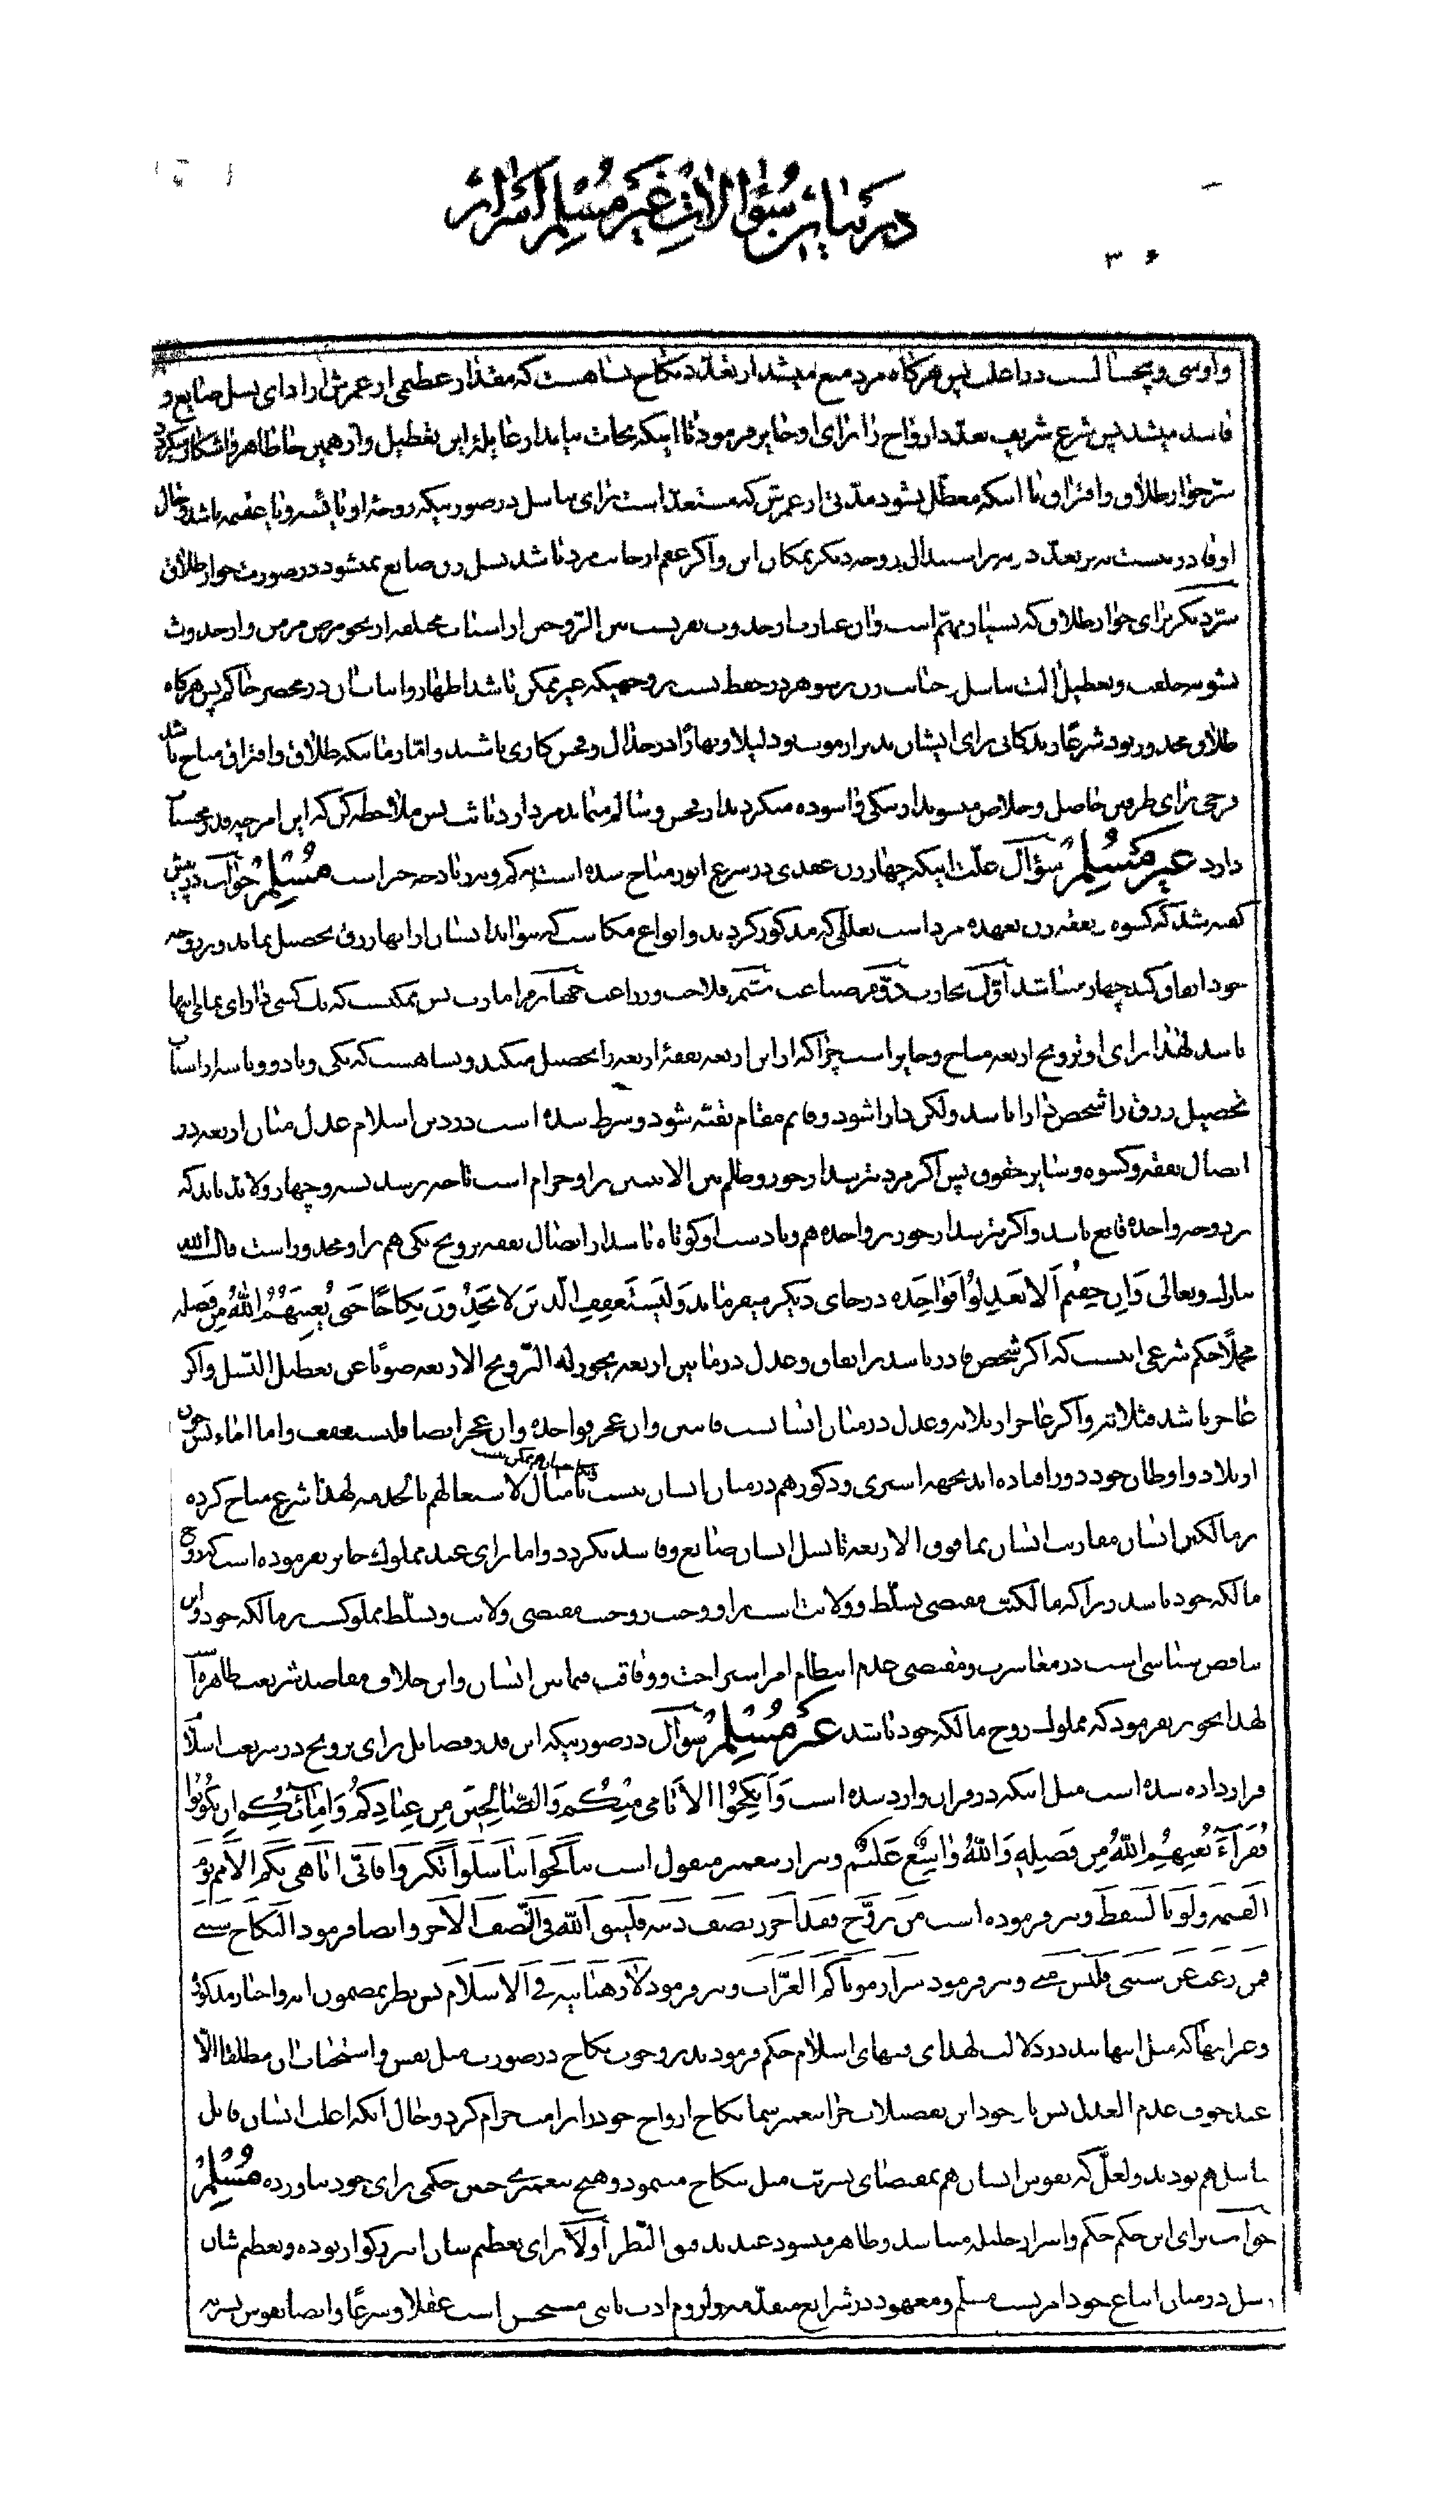 در بیان سؤالات غیر مسلم از اسرار
۳۶
و او سی و پنجسال است در اغلب پس هرگاه مرد منع میشد از تعدّد نکاح بسا هست که مقدار عظیمی از عمرش از ادای نسل ضایع و
فاسد میشد پس شرع شریف تعدّد ازواج را برای او جایز فرمود تا اینکه نجات بیابد از غایلۀ این تعطیل و از همین جا ظاهر و آشکار میگردد
سرّ جواز طلاق و افتراق تا اینکه معطّل نشود مدّتی از عمرش که مستعدّ است برای تناسل در صورتیکه زوجۀ او یائسه و یا عقیمه باشد و حال
او قادر نیست بر تعدّد پس بر استبدال زوجه دیگر بمکان این و اگر عقم از جانب مرد باشد نسل زن ضایع نمیشود در صورت جواز طلاق
سرّ دیگر برای جواز طلاق که بسیار مهمّ است و آن عبارت از حدوث نفرتست بین الزّوجین از اسباب مختلفه از نحو مرض مزمن و از حدوث
تشویه خلقت و تعطیل آلت تناسل و خیانت زن بر شوهر در حفظ نسب بر وجهیکه غیر ممکن باشد اظهار و اثبات آن در محضر حاکم پس هرگاه
طلاق محذور بود شرعا زندگانی برای ایشان بدتر از موت بود لیلا و نهارا در جدال و فحش کاری باشند و امّا زمانیکه طلاق و افتراق مباح باشد
فرجی برای طرفین حاصل و خلاص میشوند از تنگی و آسوده میگردند از فحش و سالم میماند مرد از دیاثت پس ملاحظه کن که این امر چه قدر محسنات
دارد غیر مسلم سؤال علّت اینکه چهار زن عقدی در شرع انور مباح شده است نه کمتر و نه زیاده چه چیز است مسلم جواب در پیش
گفته شد که کسوه و نفقه زن بعهده مرد است بعللی که مذکور گردید و انواع مکاسب که میتوانند انسان از آنها رزق تحصیل نماید و بر زوجه
خود انفاق کند چهار میباشد اوّل تجارت دوّم صناعت سیّم فلاحت و زراعت چهارم امارت پس ممکنست که یک کسی دارای تمامی اینها
باشد لهذا برای او تزویج اربعه مباح و جایز است چرا که از این اربعه نفقۀ اربعه را تحصیل میکند و بسا هست که یکی و یا دو و یا سه از اسباب
تحصیل رزق را شخص دارا باشد ولکن دارا شود و قایم مقام بقیّه شود و شرط شده است در دین اسلام عدل میان اربعه در
ایصال نفقه و کسوه و سایر حقوق پس اگر مرد بترسد از جور و ظلم بین الاثنین بر او حرام است تا چه برسد بسه و چهار و لابد باید که
بر زوجه واحده قانع باشد و اگر بترسد از جور بر واحده هم و یا دست او کوتاه باشد از ایصال نفقه تزویج یکی هم بر او محذور است قال الله
تبارک و تعالی وَاِن خِفتُم اَلاّ تَعدِلُوا فَواحِدَه در جای دیگر میفرماید وَلیَستَعفِفِ الّذینَ لا یَجِدُونَ نِکاحًا حَتّی یُغنِیَهُمُ اللهُ مِن فَضلِه
مجملاً حکم شرعی اینست که اگر شخص قادر باشد بر انفاق و عدل در مابین اربعه یجوز له التّزویج الاربعه صونًا عن تعطیل النّسل و اگر
عاجز باشد فثلاثه و اگر عاجز از ثلاثه و عدل در میان انشانست فاثنین وان عجز فواحده وان عجز ایضا فلیستعفف و اما اماء پس چون
از بلاد و اوطان خود دور افتاده‌اند بجهه اسیری و ذکور هم در میان ایشان نیست لاشتغالهم بالخدمه لهذا شرع مباح کرده
بر مالکین ایشان مقاربت ایشان بما فوق الاربعه تا نسل ایشان ضایع و فاسد نگردد و اما برای عبد مملوک جایز نفرموده است که زوج
مالکه خود باشد زیرا که مالکیّت مقتضی تسلّط و ولایت است بر او و زوجیت مقتضی ولایت و تسلّط مملوکست بر مالکه خود و این
تناقض مناسی است در معاشرت و مقتضی عدم انتظام امر استراحت و وفاقت فیمابین ایشان و این خلاف مقاصد شریعت طاهره است
لهذا تجویز نفرمود که مملوک زوج مالکه خود باشد غیر مسلم سؤال در صورتیکه این قدر فضایل برای تزویج در شریعت اسلام
قرار داده شده است مثل اینکه در قرآن وارد شده است وَاَنکِحُوا الاَیامی مِنکُم وَالصّالِحینَ مِن عِبادِکُم وَاِمائِکُم اِن یَکُونُوا
فُقَرآءَ یُغنِهِمُ اللهُ مِن فَضلِهِ وَاللهُ واسِعٌ عَلیمٌ و نیز از پیغمبر منقول است تناکحوا تناسلوا تکثروا فانّی اباهی بکم الامم یوم
القیمه ولو بالسّقط و نیز فرموده است من تزوّج فقد احرز نصف دینه فلیتق الله فی النّصف الآخر و ایضا فرمود النّکاح سنّتی
فمن رغب عن سنّتی فلیس منّی و نیز فرمود شرار موتاکم العزّاب و نیز فرمود لا رهبانیّه فی الاسلام پس نظر بمضمون آیه و اخبار مذکوره
و غیر اینها که مثل اینها میباشند در دلالت لهذا فقهای اسلام حکم فرمودند بر وجوب نکاح در صورت میل نفس و استحباب آن مطلقا الّا
عند خوف عدم العدل پس با وجود این تفصیلات چرا پیغمبر شما نکاح ازواج خود را بر امت حرام کرد و حال آنکه اغلب ایشان قابل
تناسل هم بودند و لعلّ که نفوس ایشان هم بمقتضای بشریّت میل بنکاح مینمود و هیچ پیغمبری چنین حکمی برای خود نیاورده مسلم
جواب برای این حکم حکم و اسرار جلیله میباشد و ظاهر میشود عند تدقیق النّظر اوّلا برای تعظیم شان آن بزرگوار بوده و تعظیم شان
رسل در میان اتباع خود امریست مسلّم و معهود در شرایع متقدّمه و لزوم ادب با نبی مستحسن است عقلا و شرعًا و ایضا نفوس بشریّه